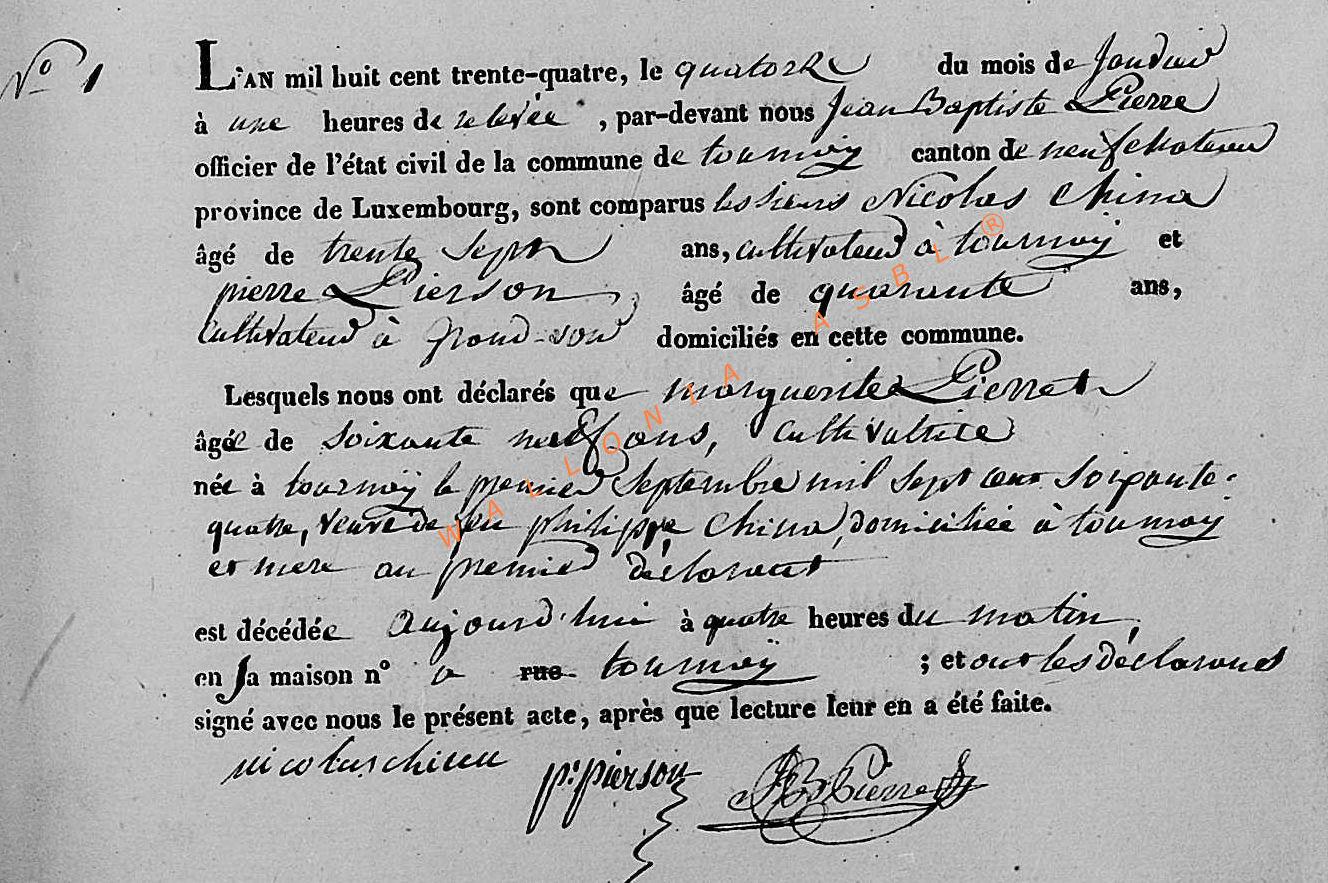 N.º 1
L'AN mil huit cent trente-quatre, le quatorze du mois de Janvier
à une heures de relevée, par-devant nous Jean Baptiste Pierre
officier de l'état civil de la commune de tournay canton de neufchateau
province de Luxembourg, sont comparus les sieurs Nicolas China
âgé de trente sept ans, cultivateur à tournay et
pierre Pierson, âgé de quarante ans,
Cultivateur à grand-voir domiciliés en cette commune.
Lesquels nous ont déclarés que marguerite Pierret
âgée de soixante neuf ans, Cultivatrice
née à tournay le premier Septembre mil sept cent soixante-
quatre, veuve de feu philippe China, domiciliée à tournay
et mere au premier déclarant
est décédée aujourd'hui à quatre heures du matin,
en sa maison nº a rue tournay ; et ont les déclarants
signé avec nous le présent acte, après que lecture leur en a été faite.
nicolas china p. pierson JB Pierre
WALLONIA ASBL ®